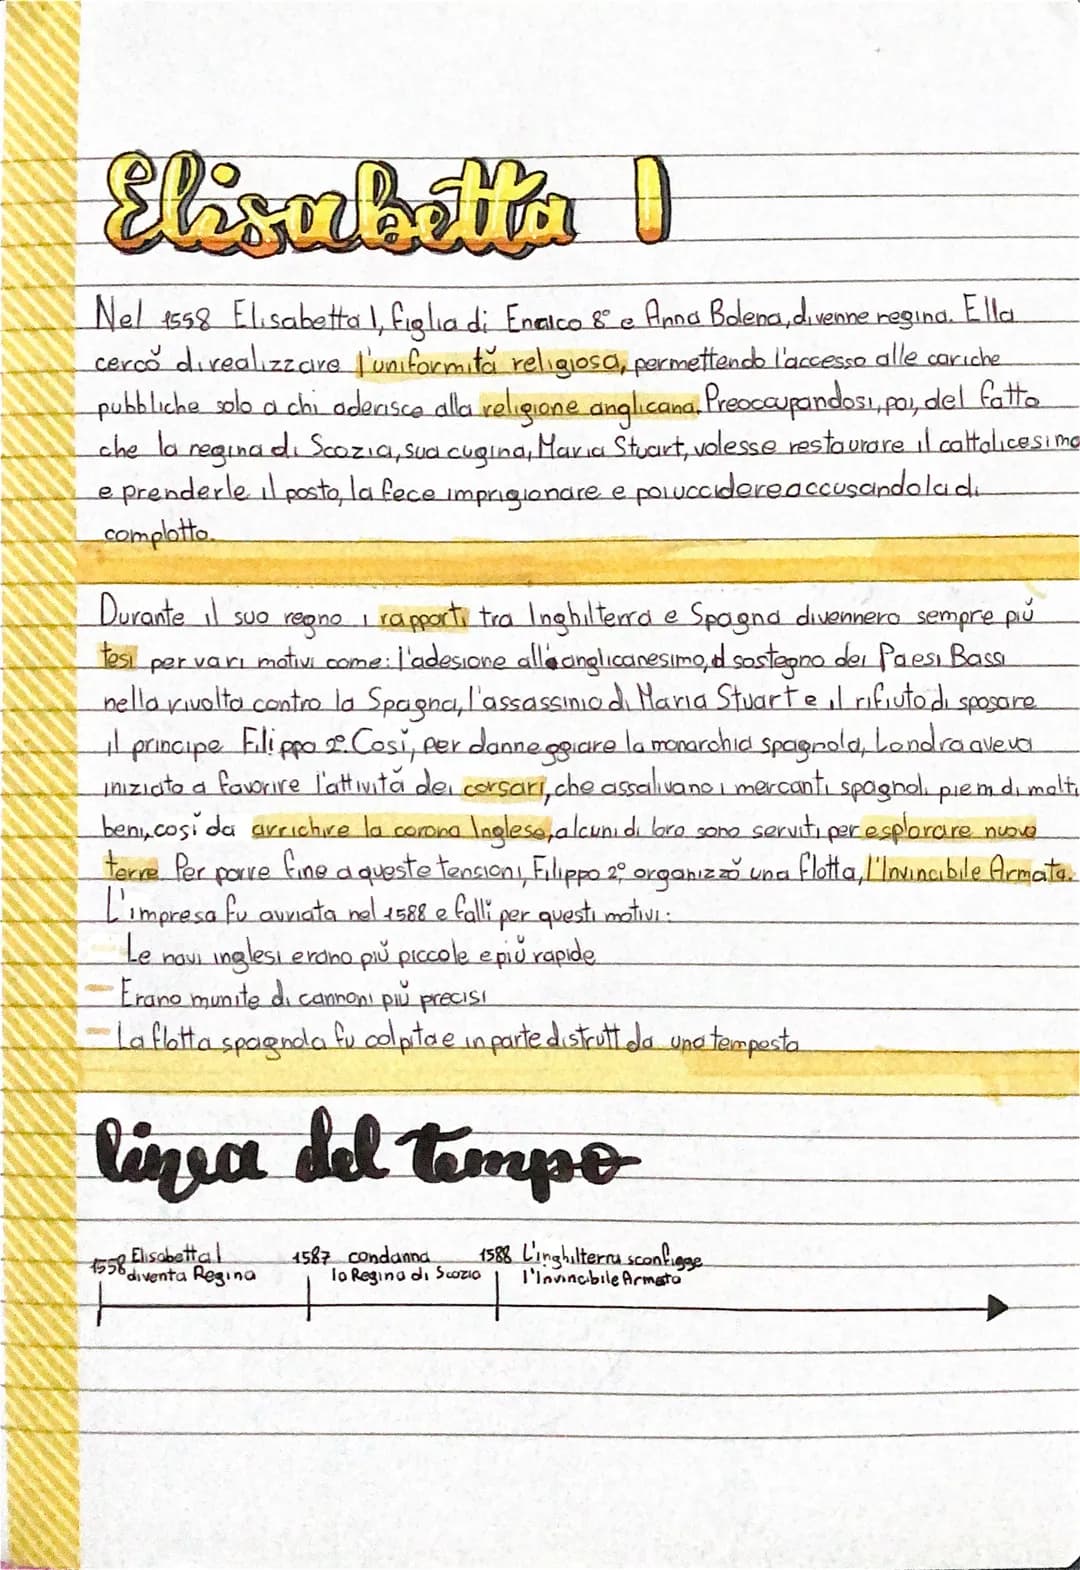 Elisabetta I
Nel 1558 Elisabetta I, figlia di Enrico 8° e Anna Bolena, divenne regina. Ella
cercò di realizzare l'uniformità religiosa, permettendo l'accesso alle cariche
pubbliche solo a chi aderisce alla religione anglicana. Preoccupandosi, poi, del fatto
che la regina di Scozia, sua cugina, Maria Stuart, volesse restaurare il cattolicesimo
e prenderle il posto, la fece imprigionare e poi uccidere accusandola di
complotto.
Durante il suo regno i rapporti tra Inghilterra e Spagna divennero sempre più
tesi per vari motivi come: l'adesione all'anglicanesimo, il sostegno dei Paesi Bassi
nella rivolta contro la Spagna, l'assassinio di Maria Stuart e il rifiuto di sposare
il principe Filippo 2°. Così, per danneggiare la monarchia spagnola, Londra aveva
iniziato a favorire l'attività dei corsari, che assalivano i mercanti spagnoli pieni di molti
beni, così da arrichire la corona Inglese, alcuni di loro sono serviti per esplorare nuove
terre. Per porre fine a queste tensioni, Filippo 2° organizzò una flotta, l'Invincibile Armata.
L'impresa fu avviata nel 1588 e fallì per questi motivi:
- Le navi inglesi erano più piccole e più rapide
- Erano munite di cannoni più precisi
- La flotta spagnola fu colpita e in parte distrutt da una tempesta
linea del tempo
1558 Elisabetta I diventa Regina
1587 condanna la Regina di Scozia
1588 L'inghilterra sconfigge l'Invincibile Armata